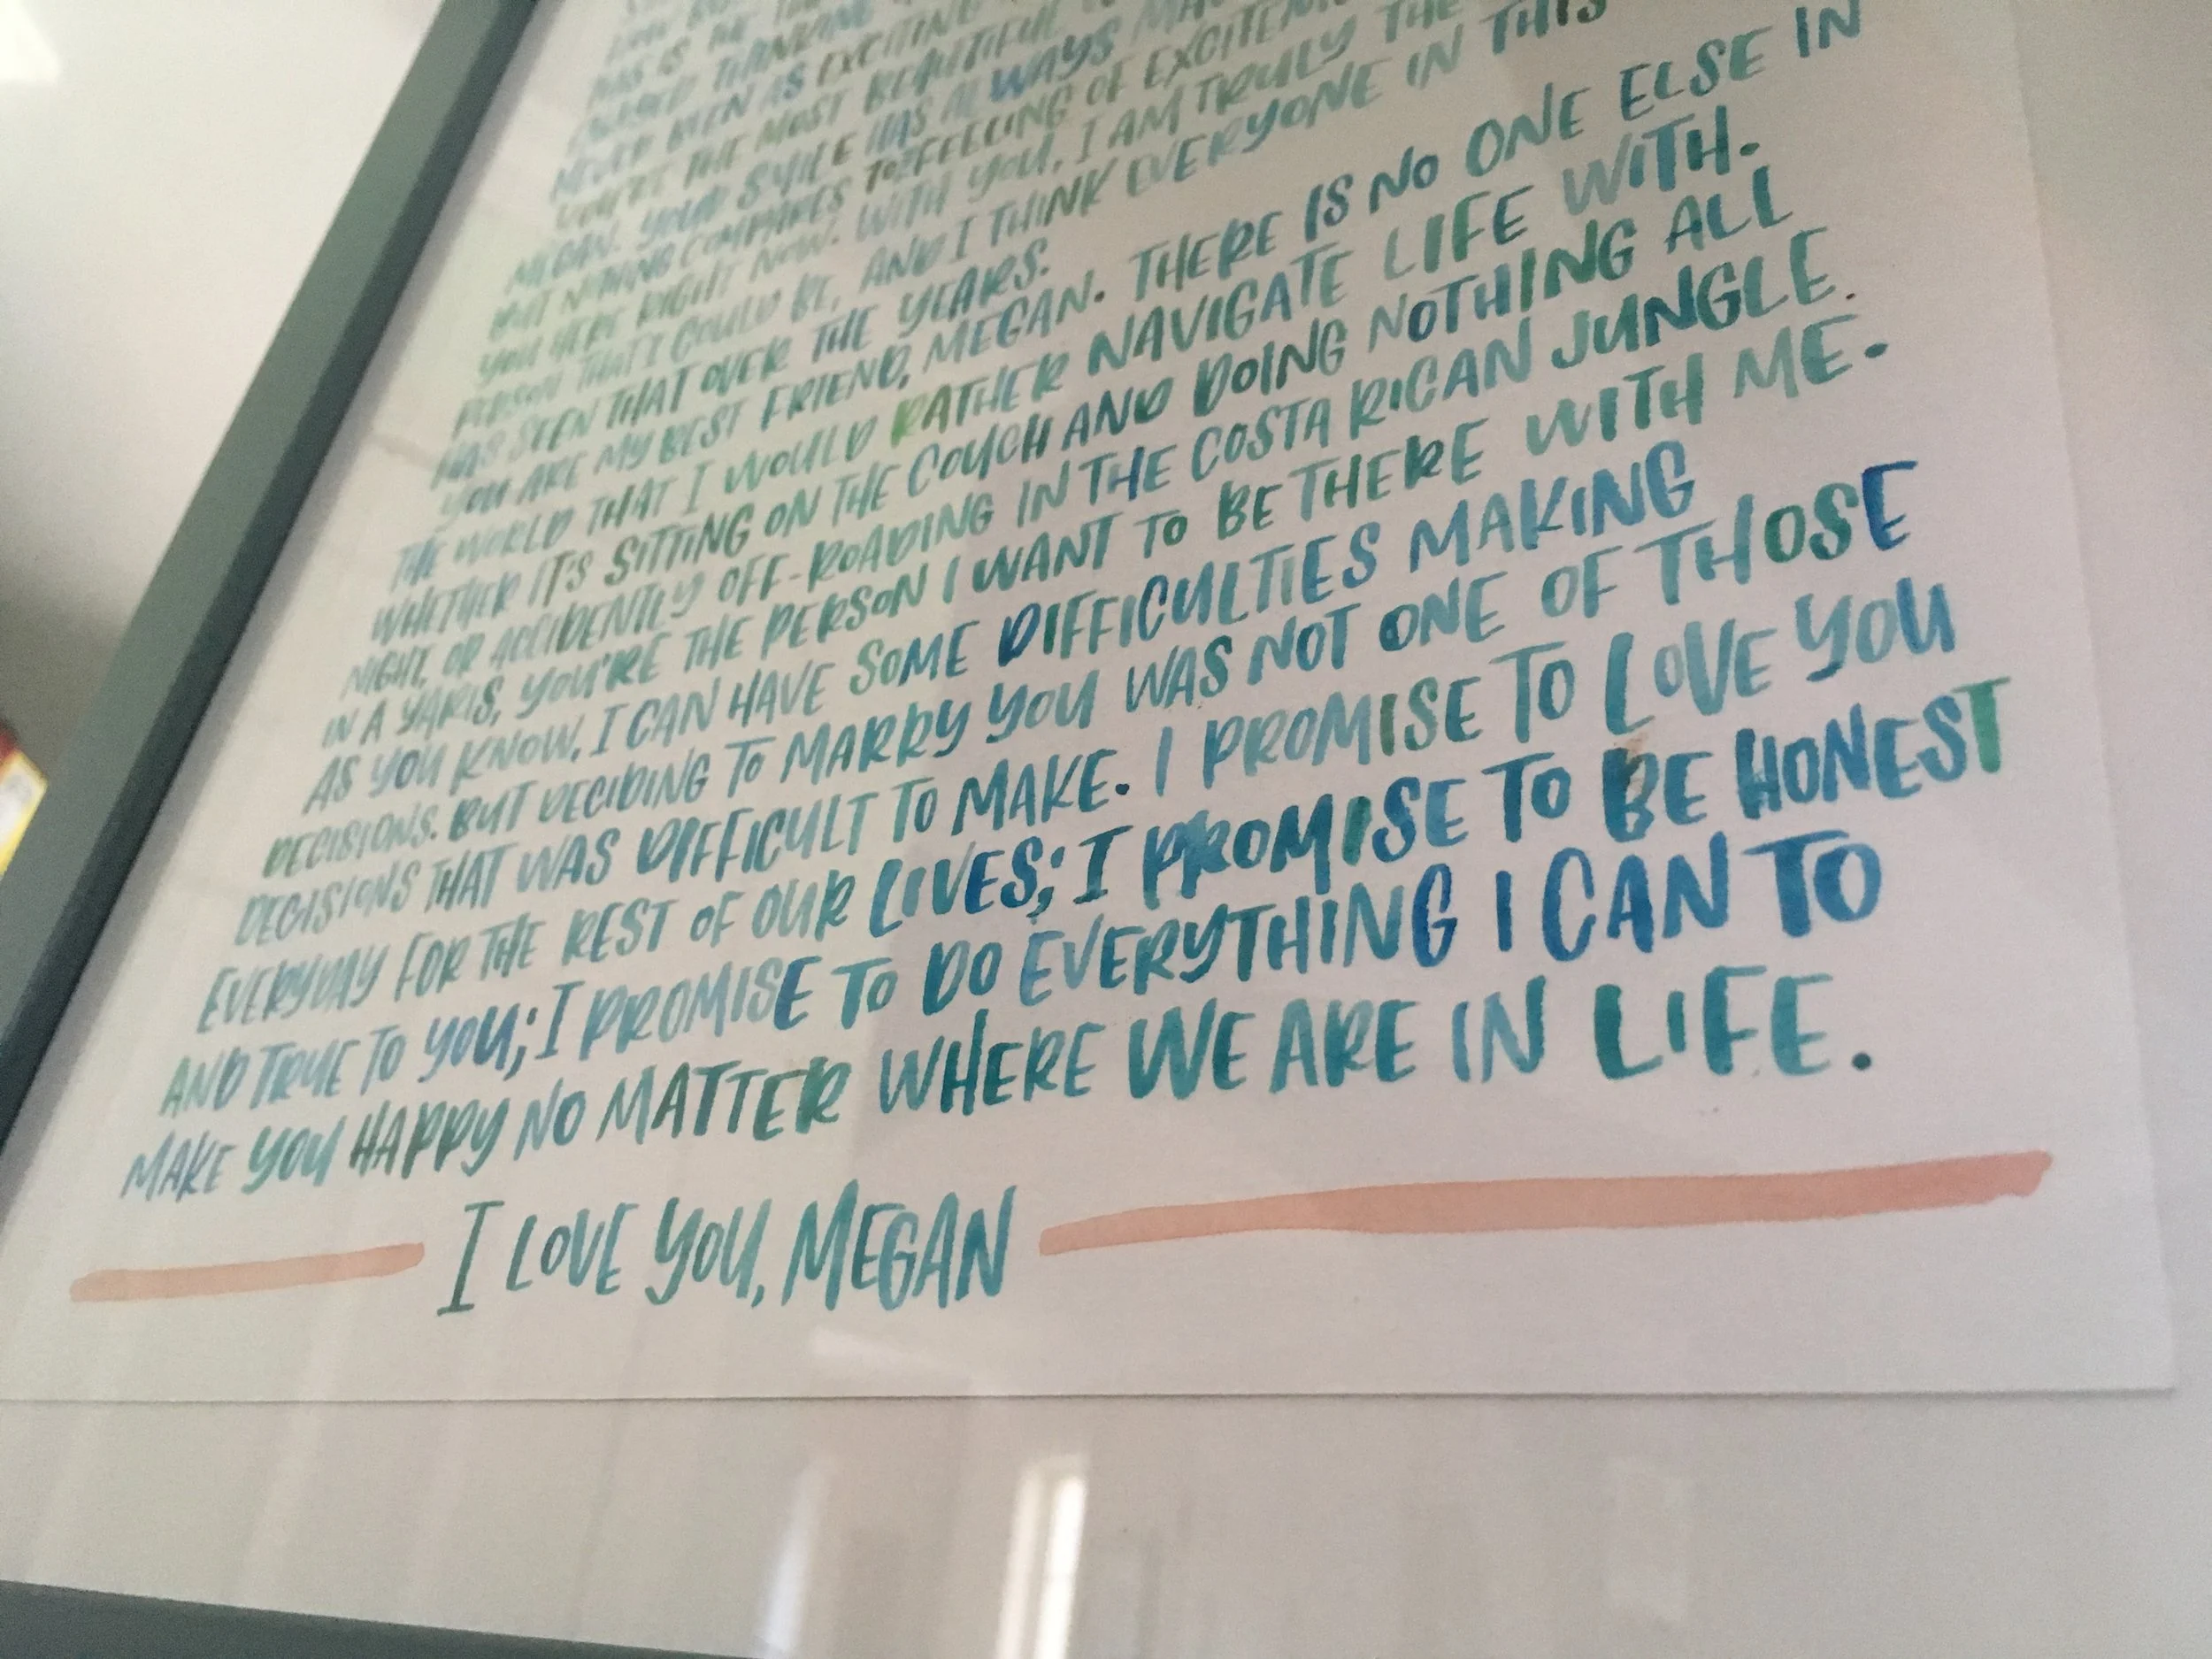 NEVER BEEN AS EXCITING
YOU'RE THE MOST BEAUTIFUL
MEGAN. YOUR SMILE HAS ALWAYS
BUT NOTHING COMPARES TO FEELING OF
YOU HERE RIGHT NOW. WITH YOU, I AM TRULY THE
PERSON THAT I COULD BE, AND I THINK EVERYONE IN THIS
HAS SEEN THAT OVER THE YEARS.
YOU ARE MY BEST FRIEND, MEGAN. THERE IS NO ONE ELSE IN
THE WORLD THAT I WOULD RATHER NAVIGATE LIFE WITH.
WHETHER IT'S SITTING ON THE COUCH AND DOING NOTHING ALL
NIGHT, OR ACCIDENTLY OFF-ROADING IN THE COSTA RICAN JUNGLE.
IN A YARIS, YOU'RE THE PERSON I WANT TO BE THERE WITH ME.
AS YOU KNOW, I CAN HAVE SOME DIFFICULTIES MAKING
DECISIONS. BUT DECIDING TO MARRY YOU WAS NOT ONE OF THOSE
DECISIONS THAT WAS DIFFICULT TO MAKE. I PROMISE TO LOVE YOU
EVERYDAY FOR THE REST OF OUR LIVES; I PROMISE TO BE HONEST
AND TRUE TO YOU; I PROMISE TO DO EVERYTHING I CAN TO
MAKE YOU HAPPY NO MATTER WHERE WE ARE IN LIFE.
I LOVE YOU, MEGAN